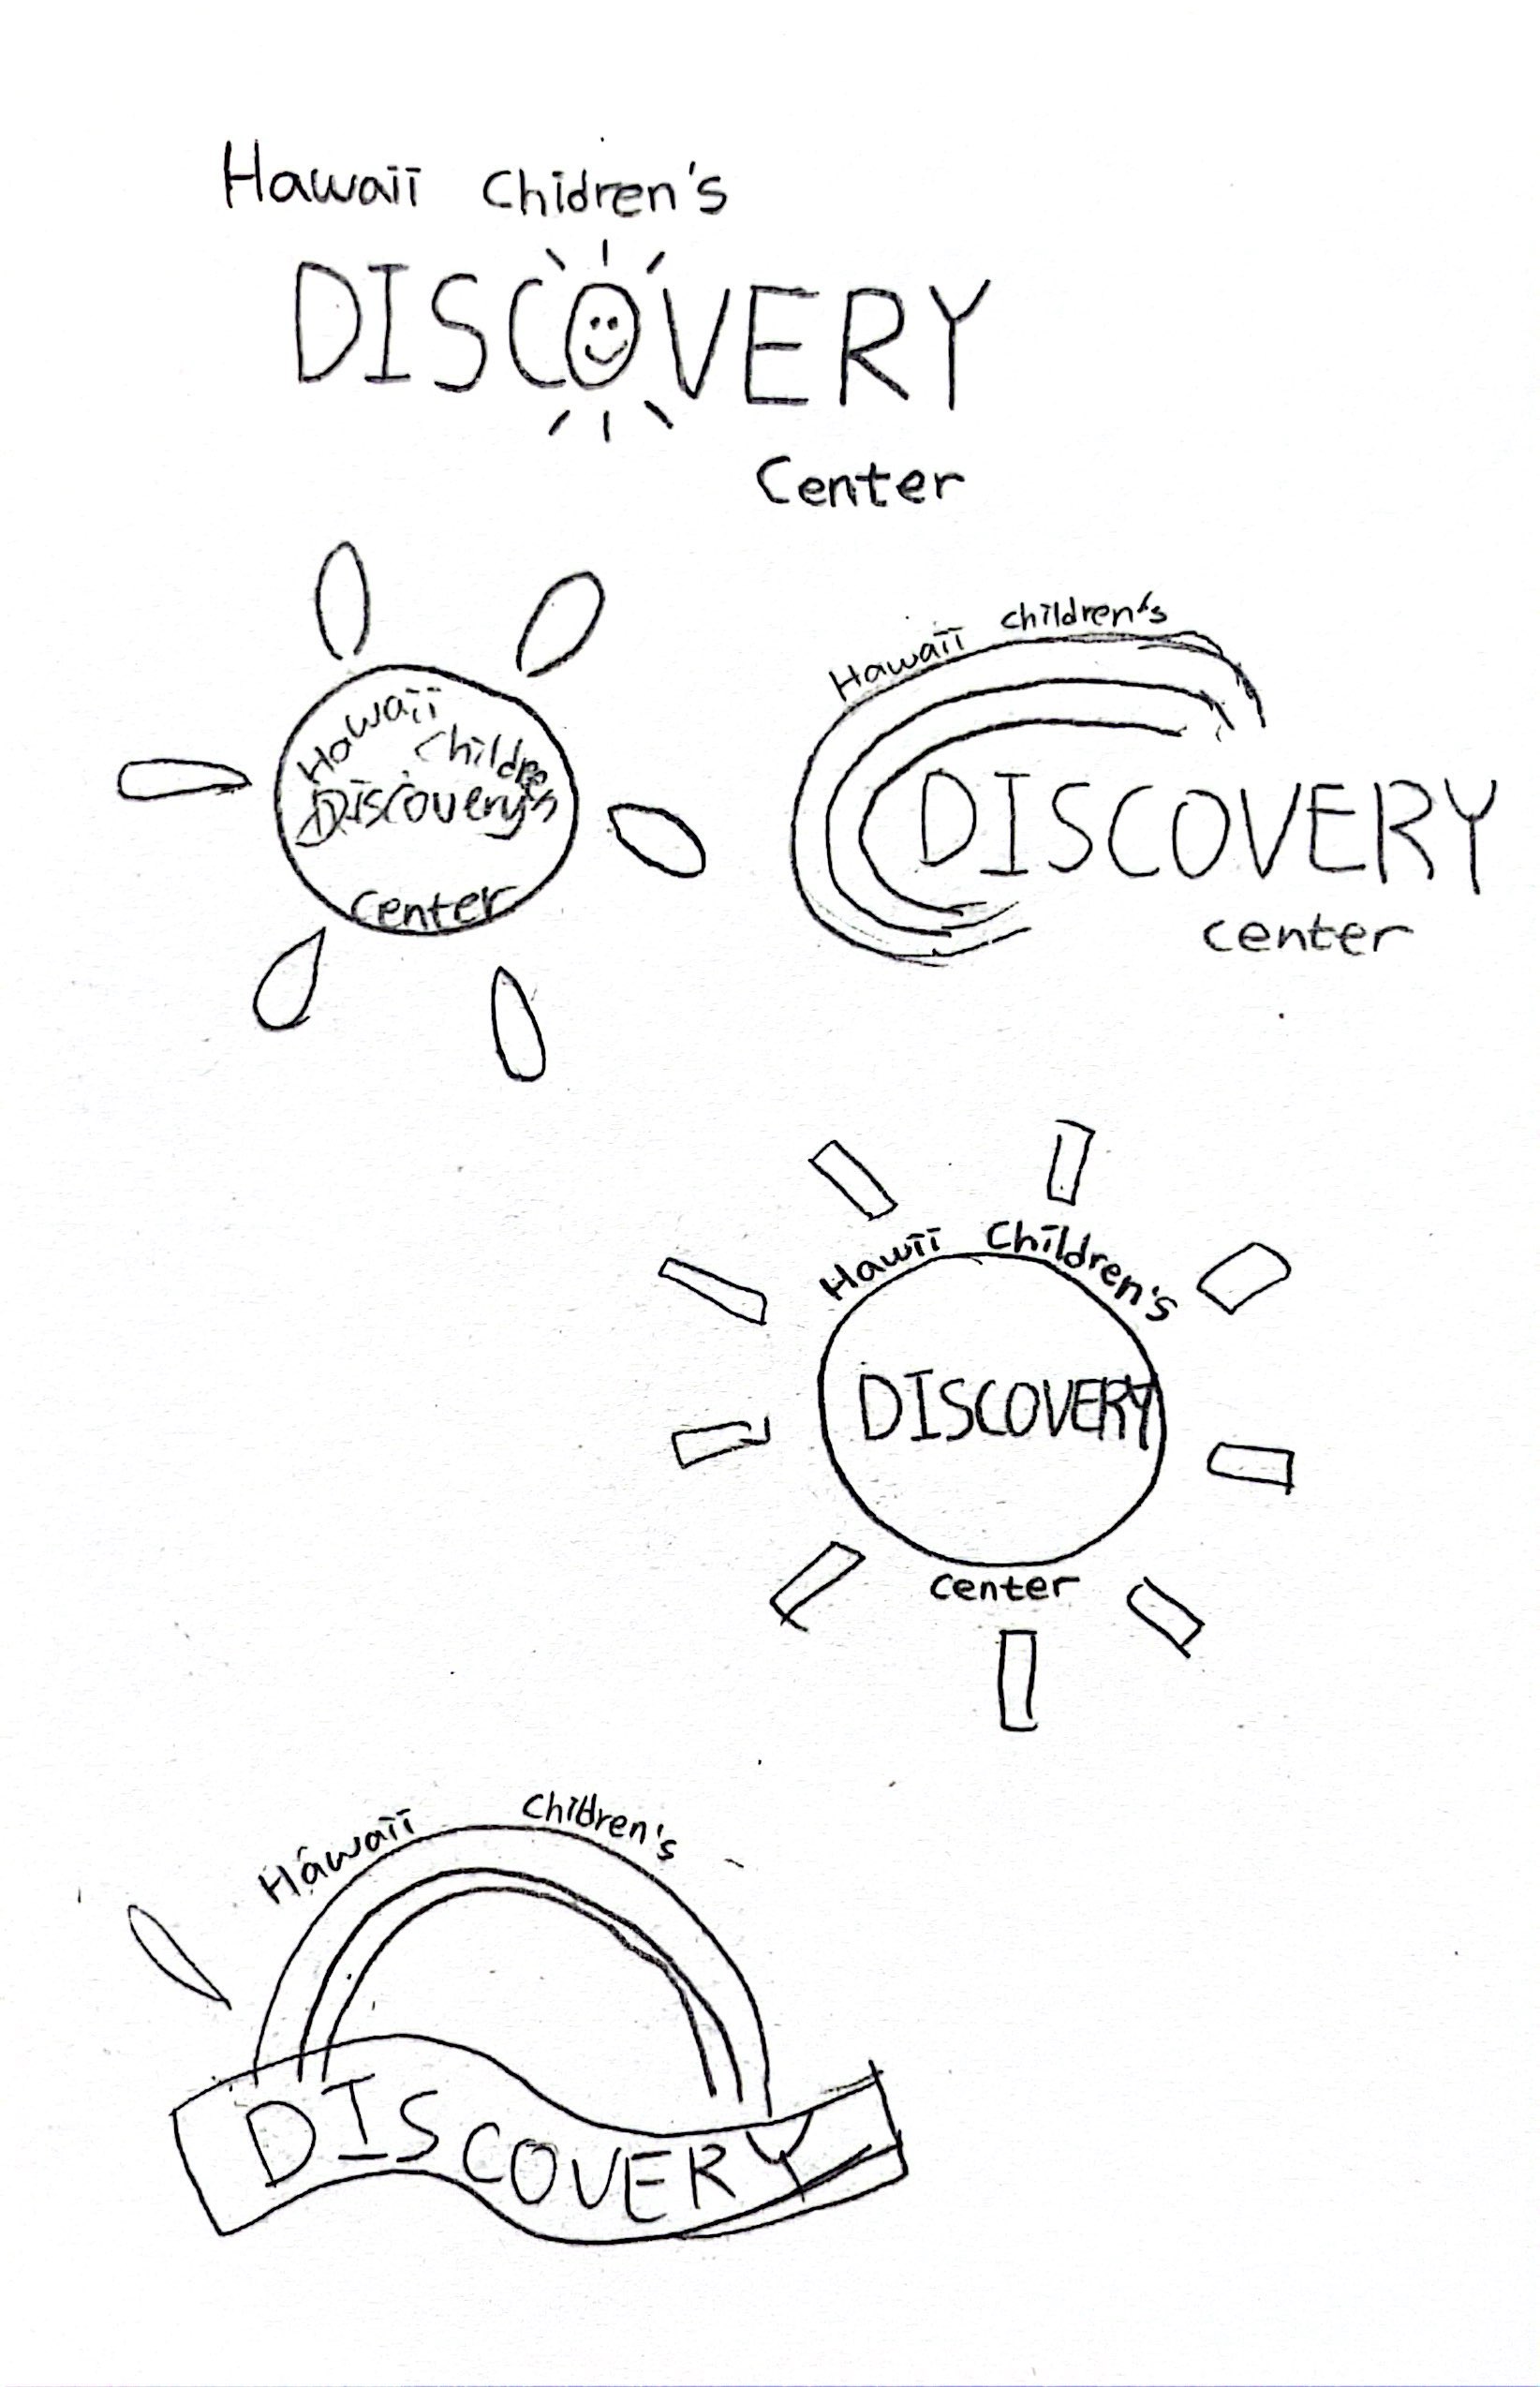 Hawaii Chidren's
DISCOVERY
Center
Hawaii
Children's
Discovery
Center
Hawaii Children's
DISCOVERY
center
Hawii Children's
DISCOVERY
center
Hawaii Children's
DISCOVERY